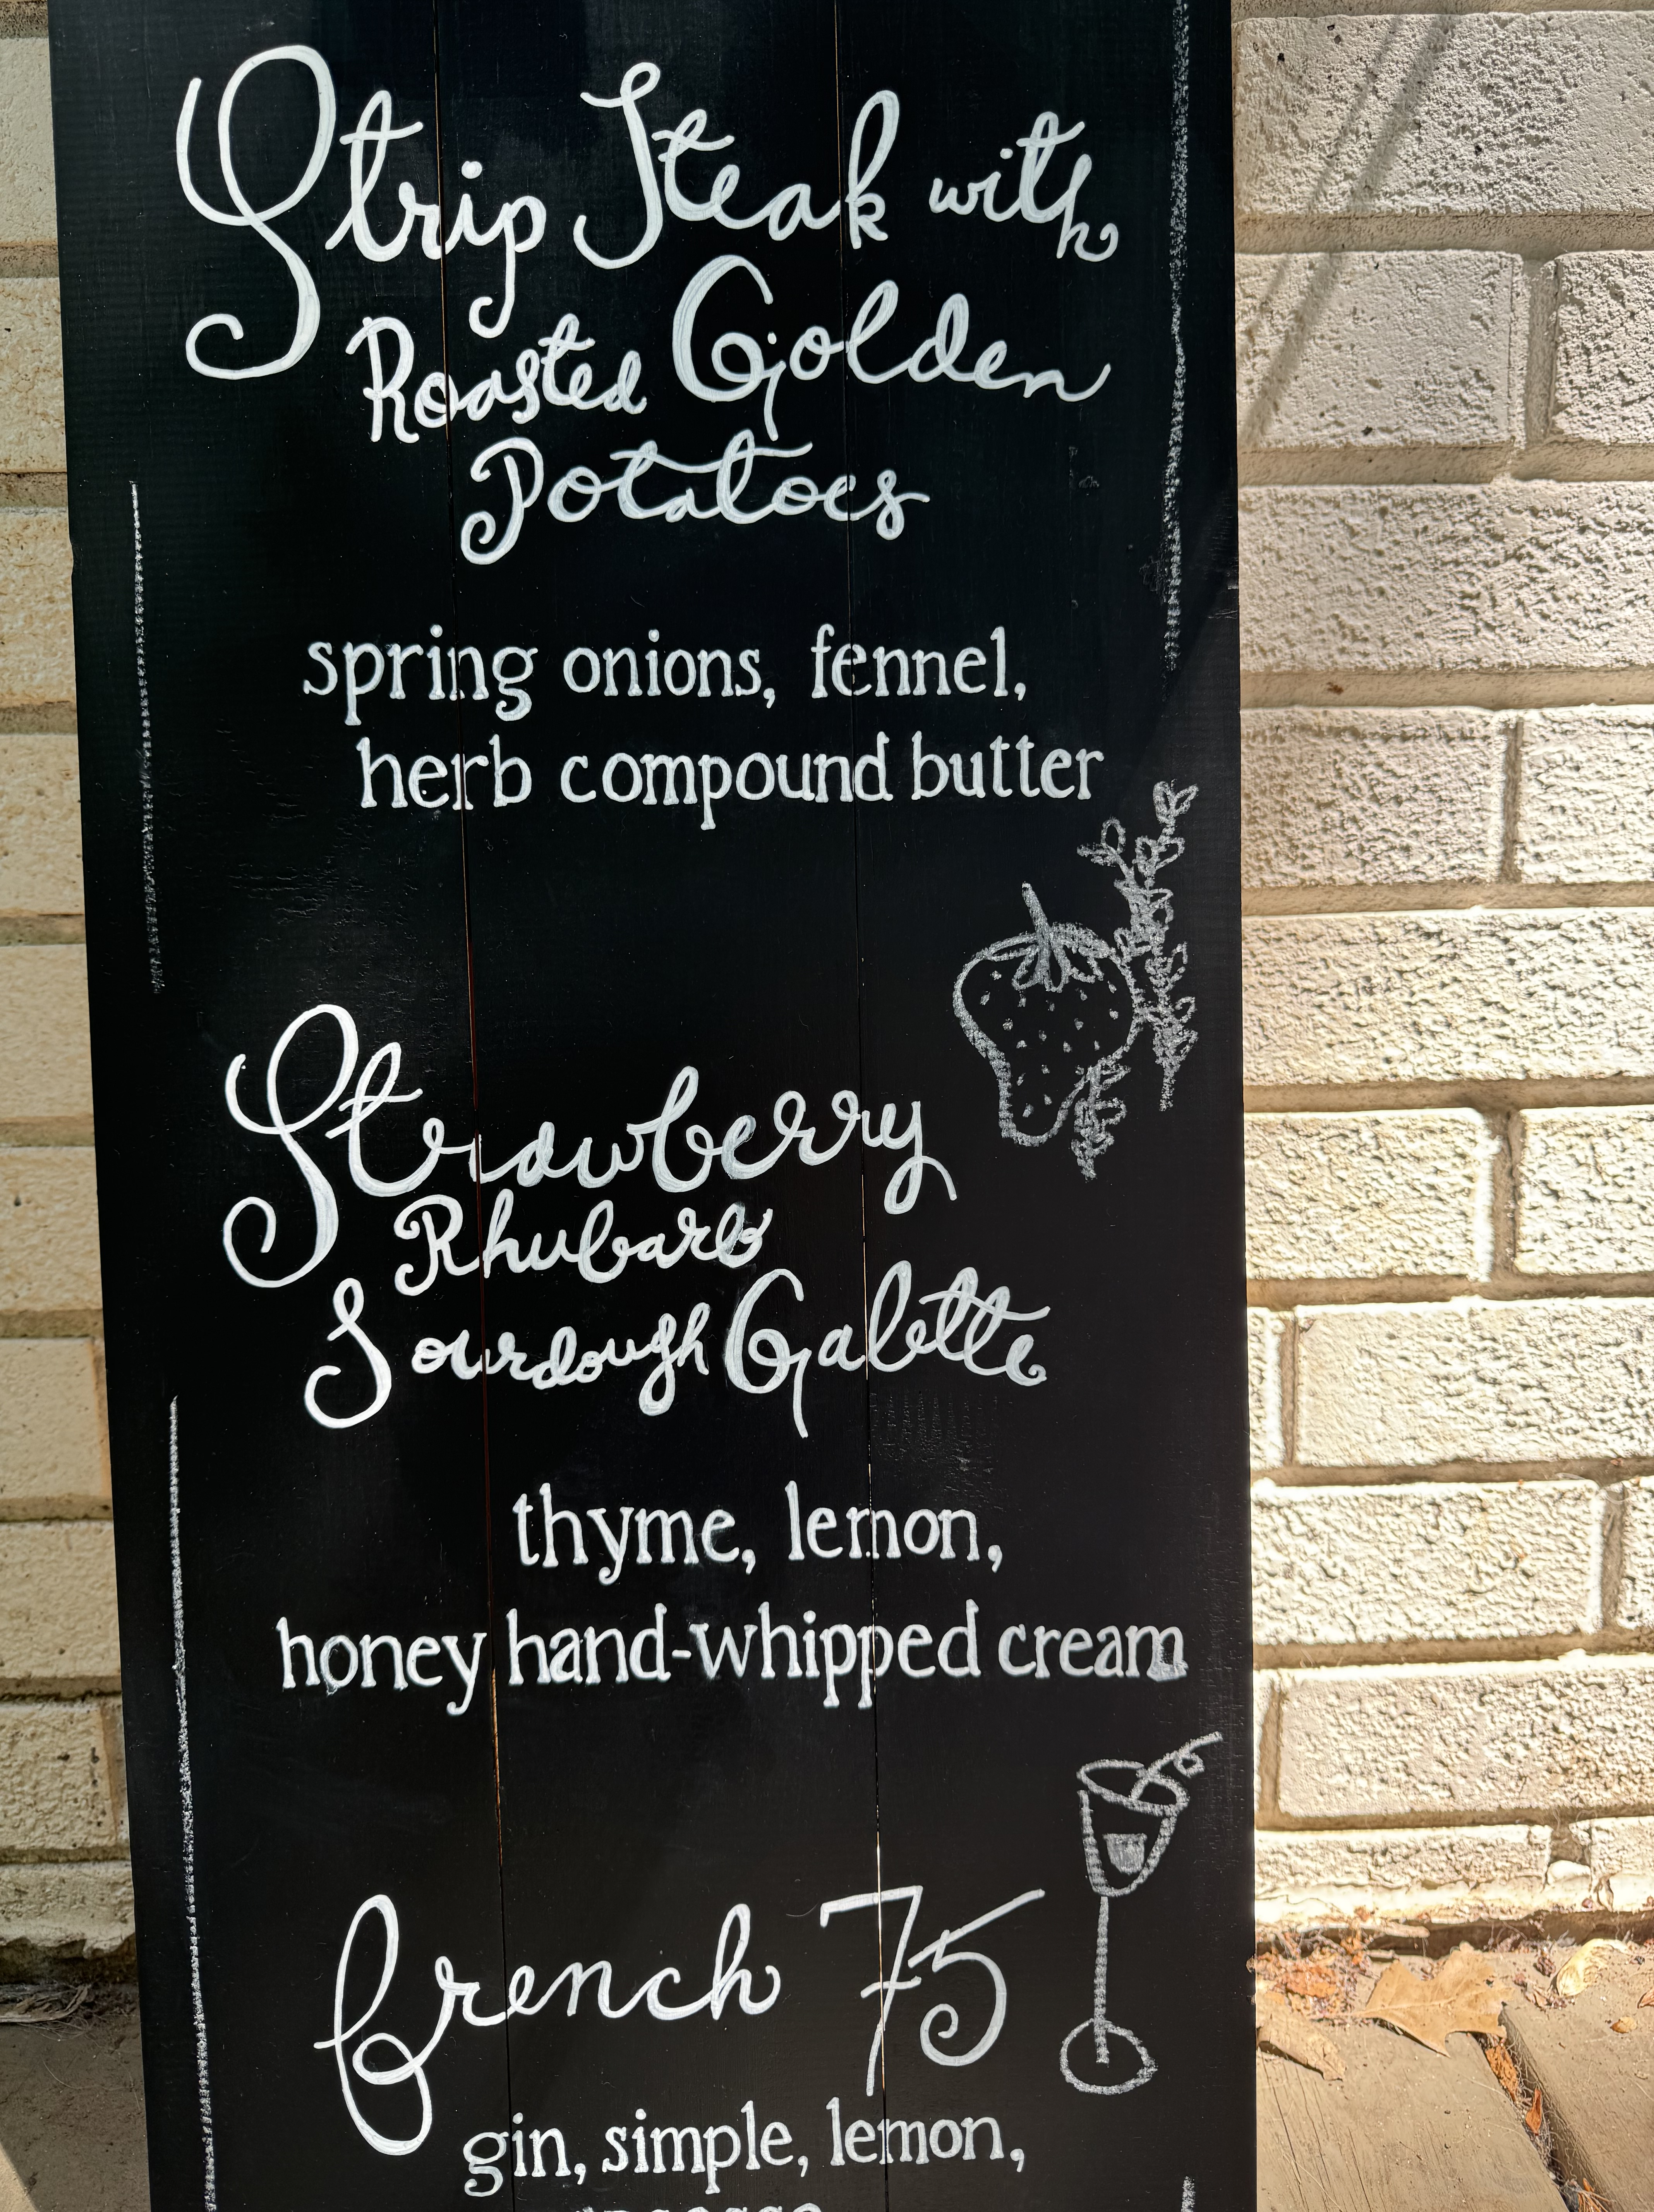 Strip Steak with
Roasted Golden
Potatoes
spring onions, fennel,
herb compound butter
Strawberry
Rhubarb
Sourdough Galette
thyme, lemon,
honey hand-whipped cream
french 75
gin, simple, lemon,